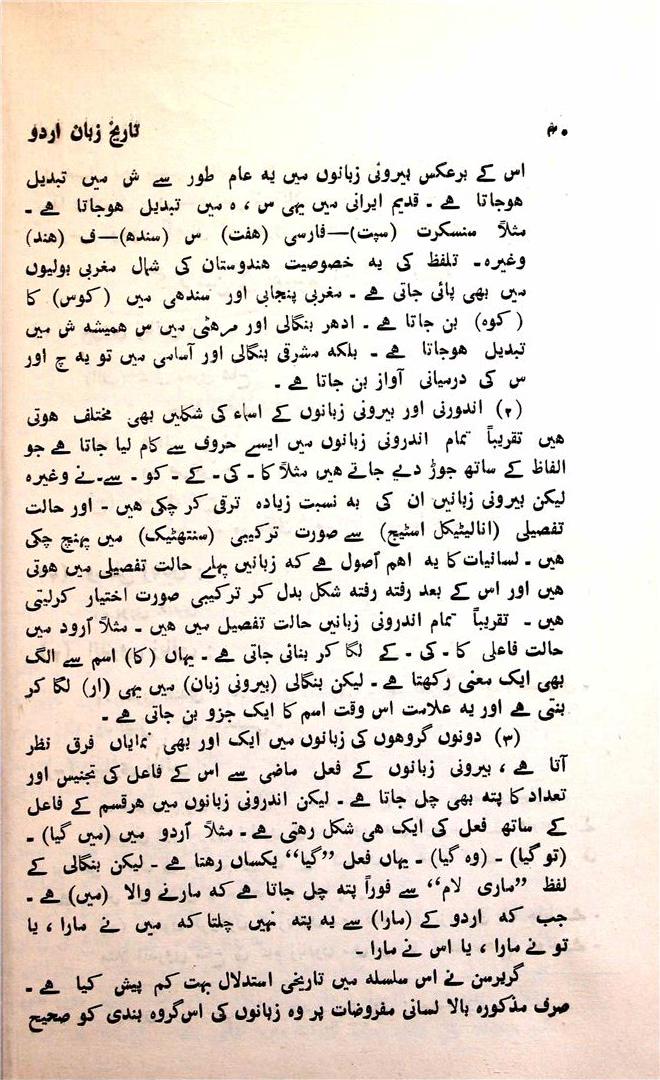 تاریخ زبان اردو
اس کے برعکس بیرونی زبانوں میں یہ عام طور سے ش میں تبدیل
ہوجاتا ہے ۔ قدیم ایرانی میں یہی س ، ہ میں تبدیل ہوجاتا ہے ۔
مثلاً سنسکرت (سپت)—فارسی (ہفت) س (سندھ)—ف (ہند)
وغیرہ۔ تلفظ کی یہ خصوصیت ہندوستان کی شمال مغربی بولیوں
میں بھی پائی جاتی ہے ۔ مغربی پنجابی اور سندھی میں (کوس) کا
(کوہ) بن جاتا ہے ۔ ادھر بنگالی اور مرہٹی میں س ہمیشہ ش میں
تبدیل ہوجاتا ہے ۔ بلکہ مشرقی بنگالی اور آسامی میں تو یہ چ اور
س کی درمیانی آواز بن جاتا ہے ۔
(۲) اندورنی اور بیرونی زبانوں کے اسماء کی شکلیں بھی مختلف ہوتی
ہیں تقریباً تمام اندرونی زبانوں میں ایسے حروف سے کام لیا جاتا ہے جو
الفاظ کے ساتھ جوڑ دیے جاتے ہیں مثلاً کا ۔ کی ۔ کے ۔ کو ۔ سے۔ نے وغیرہ
لیکن بیرونی زبانیں ان کی بہ نسبت زیادہ ترقی کر چکی ہیں ۔ اور حالت
تفصیلی (انالیٹیکل اسٹیج) سے صورت ترکیبی (سنتھٹیک) میں پہنچ چکی
ہیں ۔ لسانیات کا یہ اہم اصول ہے کہ زبانیں پہلے حالت تفصیلی میں ہوتی
ہیں اور اس کے بعد رفتہ رفتہ شکل بدل کر ترکیبی صورت اختیار کرلیتی
ہیں ۔ تقریباً تمام اندرونی زبانیں حالت تفصیل میں ہیں ۔ مثلاً اُرود میں
حالت فاعلی کا ۔ کی ۔ کے لگا کر بنائی جاتی ہے ۔ یہاں (کا) اسم سے الگ
بھی ایک معنی رکھتا ہے ۔ لیکن بنگالی (بیرونی زبان) میں یہی (ار) لگا کر
بنتی ہے اور یہ علامت اس وقت اسم کا ایک جزو بن جاتی ہے ۔
(۳) دونوں گروہوں کی زبانوں میں ایک اور بھی نمایاں فرق نظر
آتا ہے ، بیرونی زبانوں کے فعل ماضی سے اس کے فاعل کی تجنیس اور
تعداد کا پتہ بھی چل جاتا ہے ۔ لیکن اندرونی زبانوں میں ہرقسم کے فاعل
کے ساتھ فعل کی ایک ہی شکل رہتی ہے ۔ مثلاً اُردو میں (میں گیا) ۔
(تو گیا) ۔ (وہ گیا) ۔ یہاں فعل ”گیا“ یکساں رہتا ہے ۔ لیکن بنگالی کے
لفظ ”ماری لام“ سے فوراً پتہ چل جاتا ہے کہ مارنے والا (میں) ہے ۔
جب کہ اردو کے (مارا) سے یہ پتہ نہیں چلتا کہ میں نے مارا ، یا
تو نے مارا ، یا اس نے مارا ۔
گریرسن نے اس سلسلہ میں تاریخی استدلال بہت کم پیش کیا ہے ۔
صرف مذکورہ بالا لسانی مفروضات پر وہ زبانوں کی اس گروہ بندی کو صحیح